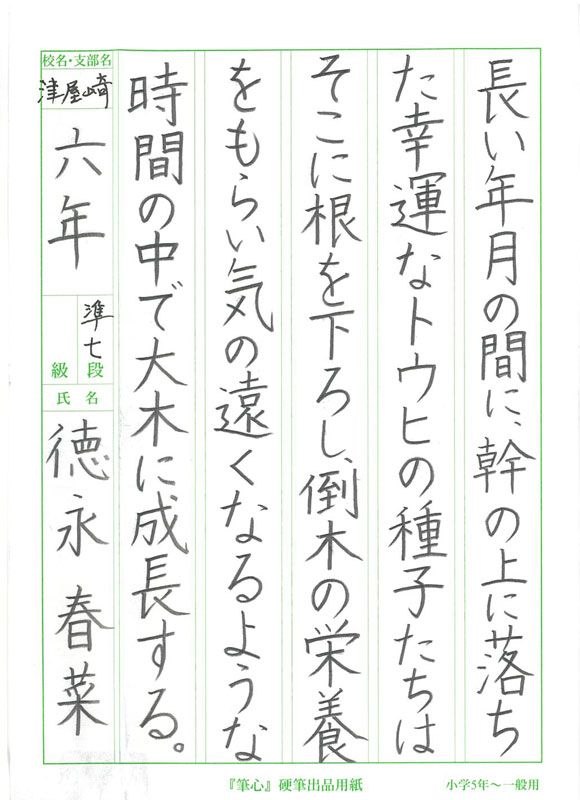 長い年月の間に、幹の上に落ち
た幸運なトウヒの種子たちは
そこに根を下ろし、倒木の栄養
をもらい気の遠くなるような
時間の中で大木に成長する。
校名・支部名
津屋崎
六年
準七
段
級
氏名
徳永春菜
『筆心』硬筆出品用紙
小学5年〜一般用